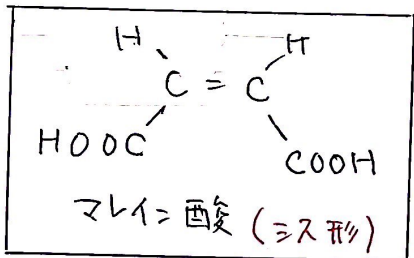 H H
C = C
HOOC COOH
マレイン酸 (シス形)